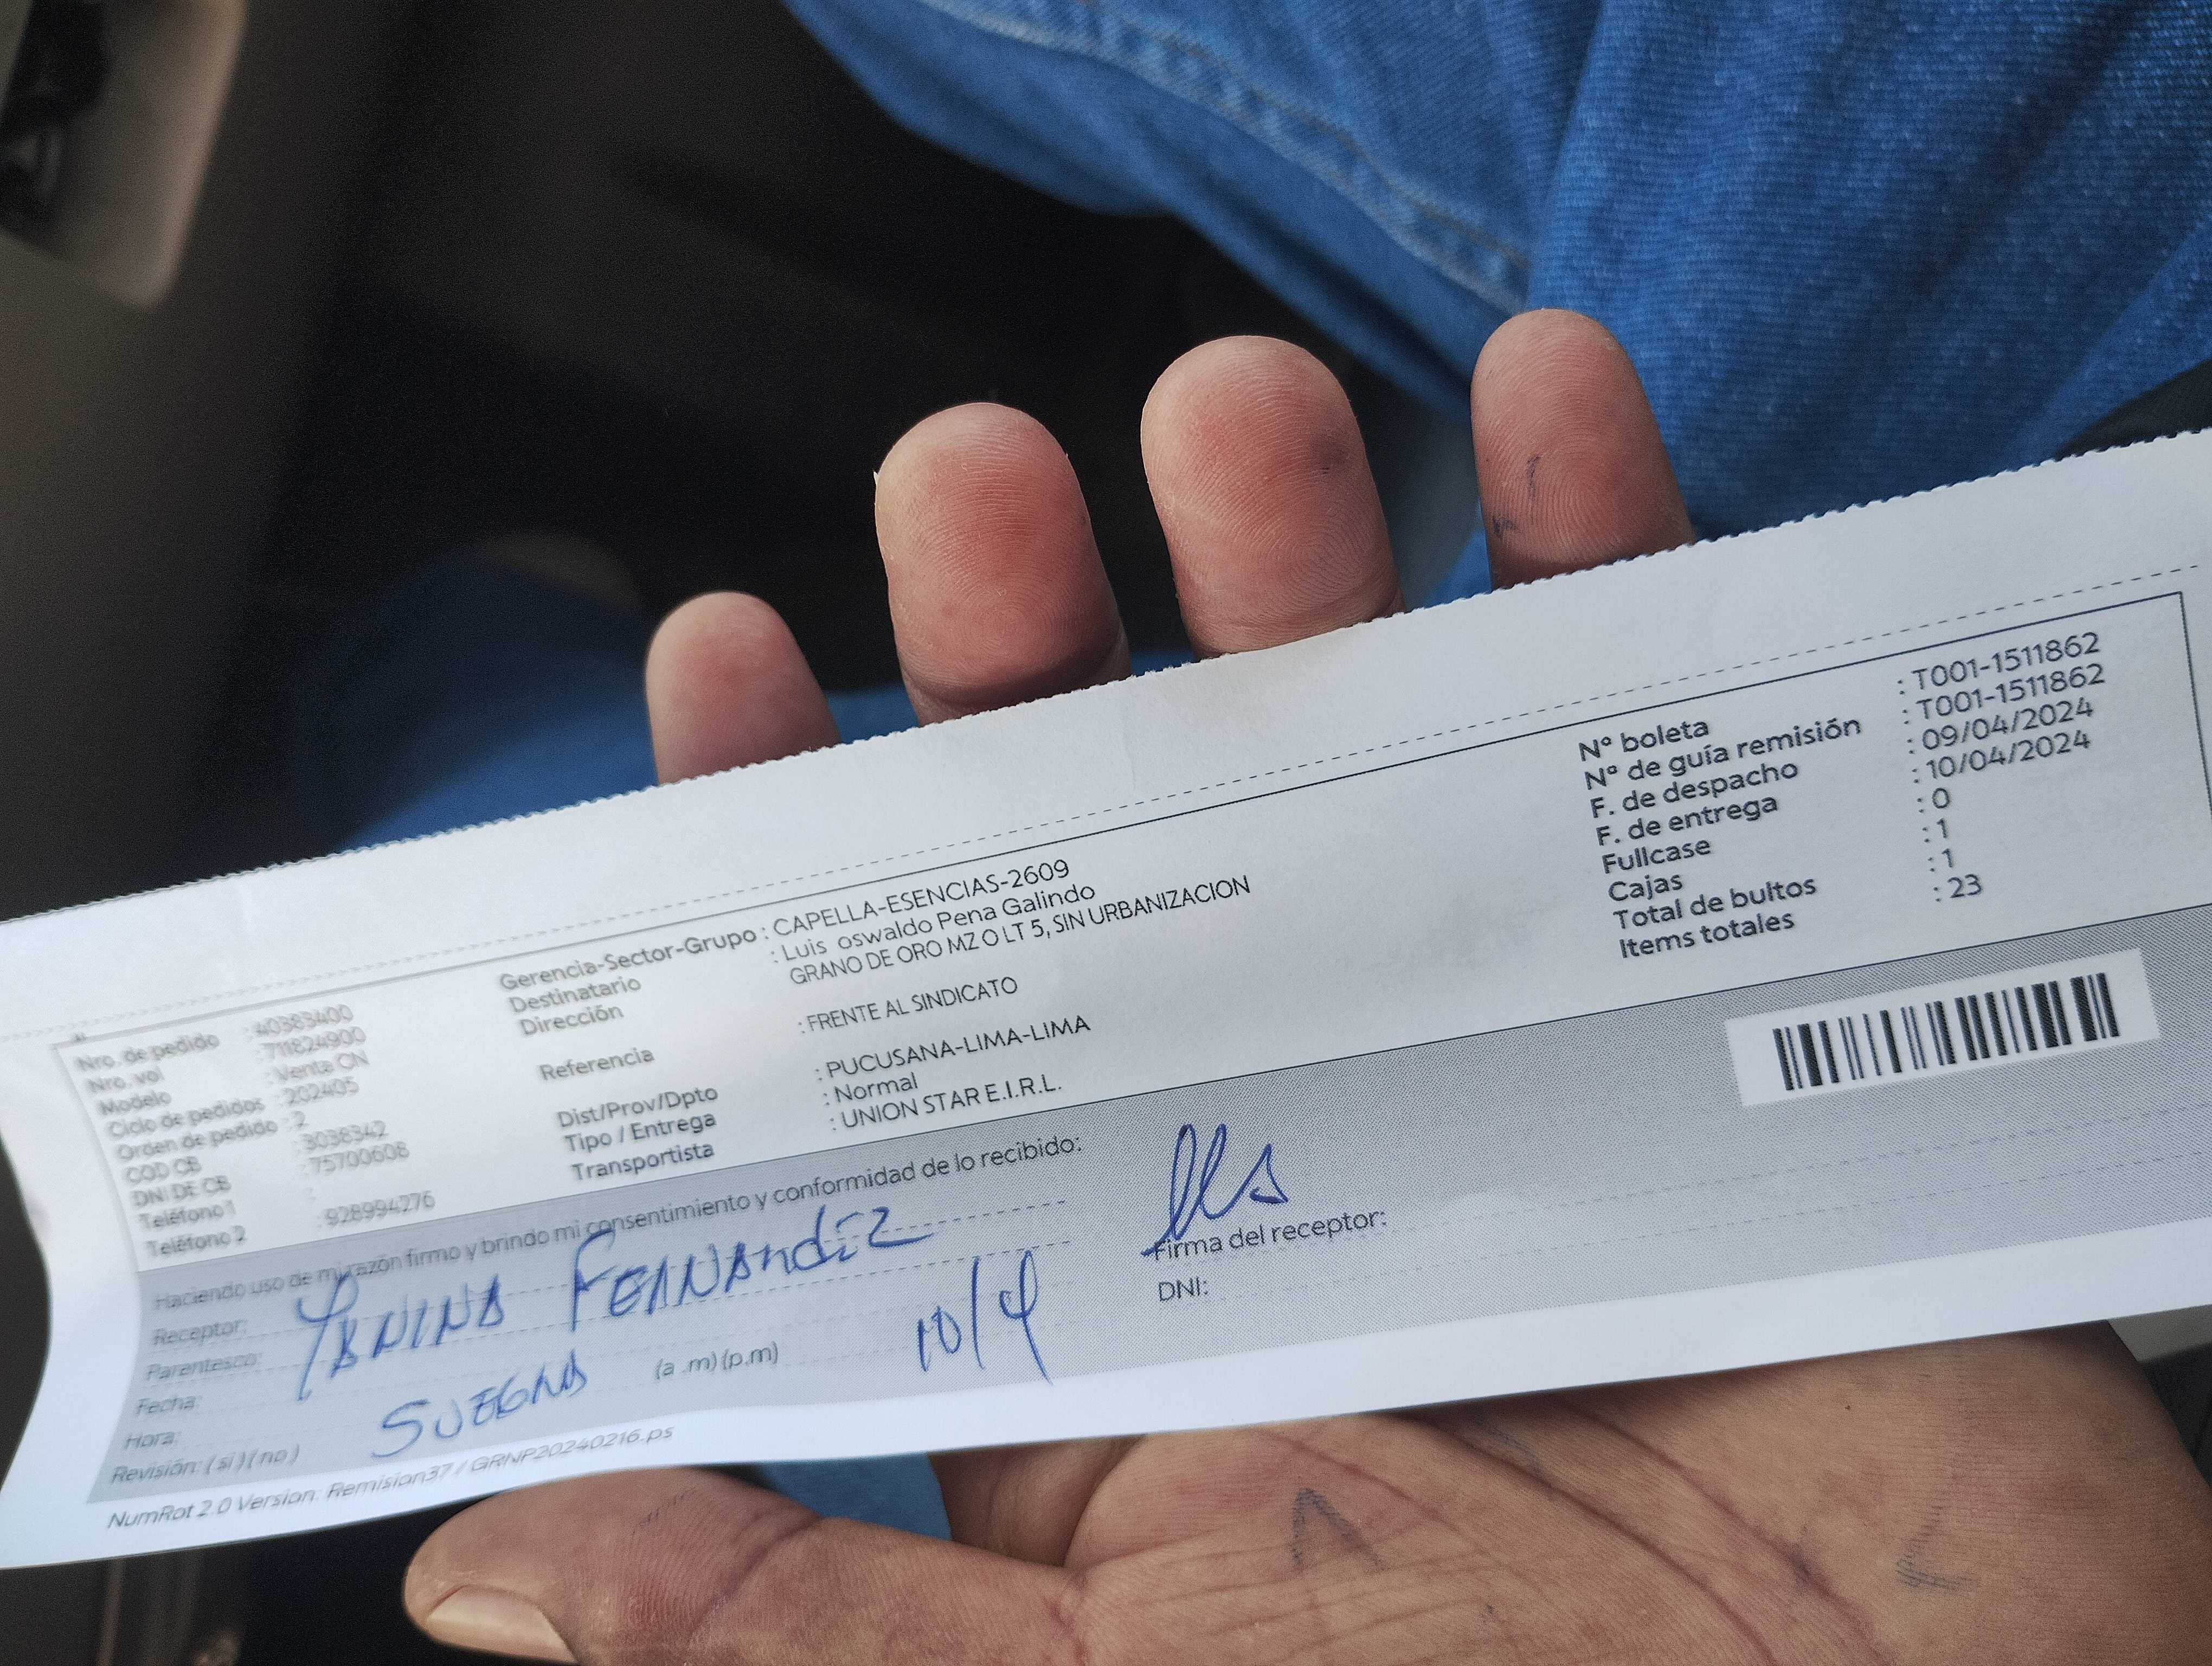 Nro. de pedido : 40383400
Nro. vol : 711824900
Modelo : Venta CN
Ciclo de pedidos : 202405
Orden de pedido : 2
COD CB : 3038342
DNI DE CB : 75700608
Teléfono 1 :
Teléfono 2 : 928994276
Gerencia-Sector-Grupo : CAPELLA-ESENCIAS-2609
Destinatario : Luis oswaldo Pena Galindo
Dirección GRANO DE ORO MZ O LT 5, SIN URBANIZACION
Referencia : FRENTE AL SINDICATO
Dist/Prov/Dpto : PUCUSANA-LIMA-LIMA
Tipo / Entrega : Normal
Transportista : UNION STAR E.I.R.L.
Nº boleta : T001-1511862
Nº de guía remisión : T001-1511862
F. de despacho : 09/04/2024
F. de entrega : 10/04/2024
Fullcase : 0
Cajas : 1
Total de bultos : 1
Items totales : 23
Haciendo uso de mi razón firmo y brindo mi consentimiento y conformidad de lo recibido:
Receptor: YANINA FERNANdEZ
Parentesco: SUEGRA
Fecha: 10/4
Hora: (a .m) (p.m)
Revisión: ( si ) ( no )
Firma del receptor:
DNI:
NumRot 2.0 Version: Remision37 / GRNP20240216.ps